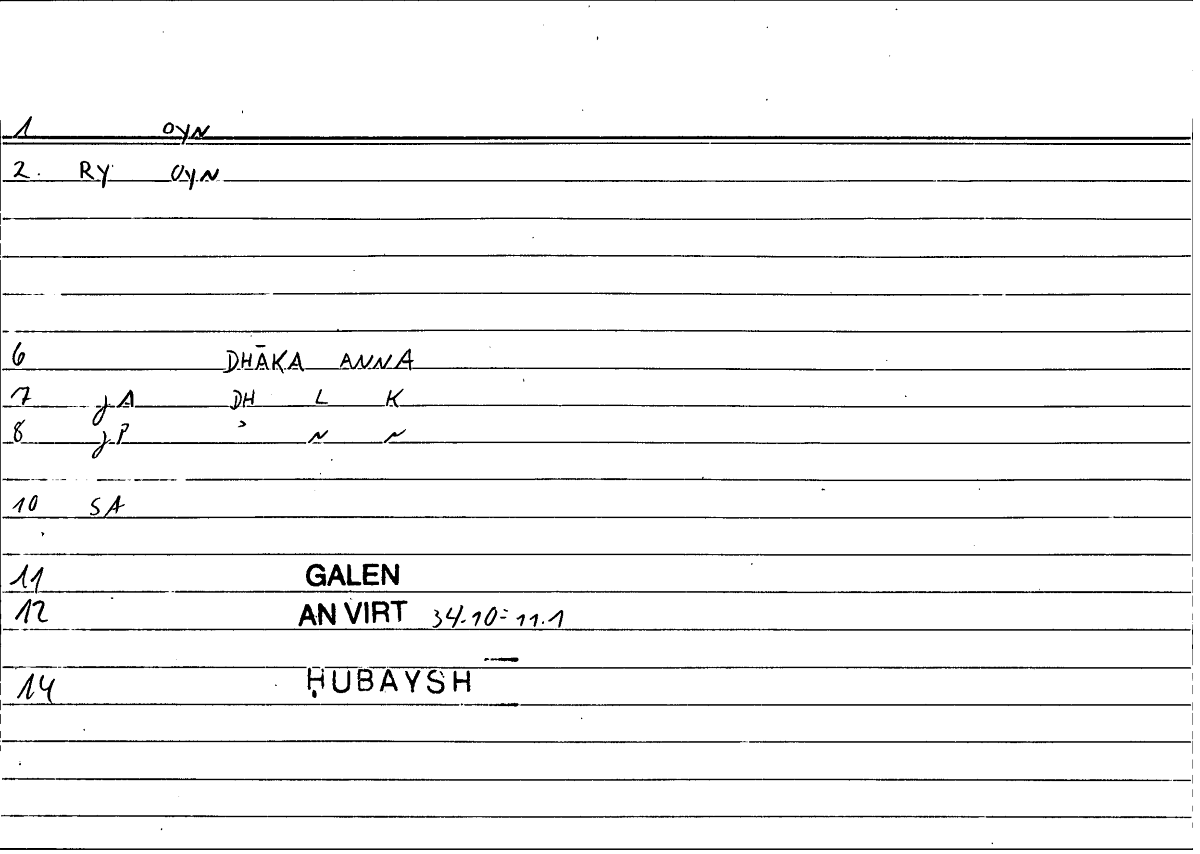 1 OYN
2. RY OYN
6 DHĀKA ANNA
7 JA DH L K
8 JP ʾ N N
10 SA
11 GALEN
12 AN VIRT 34.10=11.1
14 ḤUBAYSH